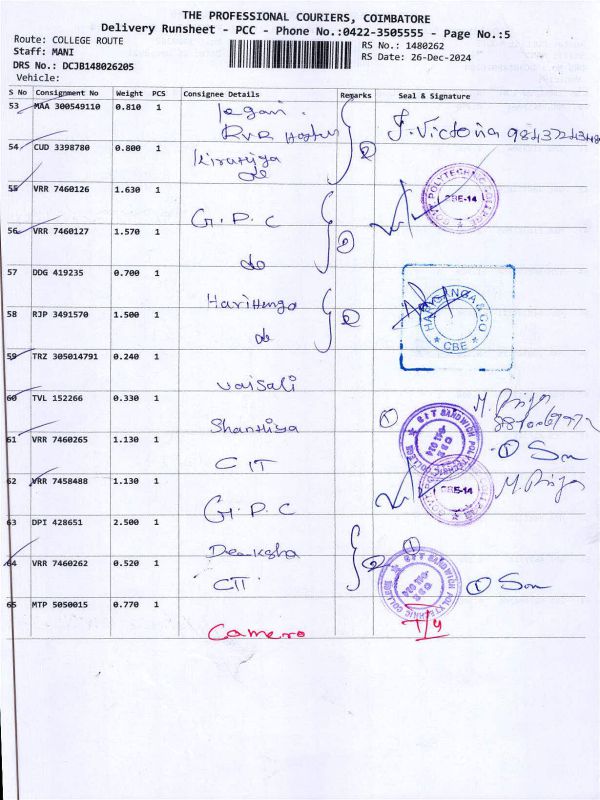 THE PROFESSIONAL COURIERS, COIMBATORE
Delivery Runsheet - PCC - Phone No.:0422-3505555 - Page No.:5
Route: COLLEGE ROUTE
RS No.: 1480262
Staff: MANI
RS Date: 26-Dec-2024
DRS No.: DCJB148026205
Vehicle:
S No Consignment No Weight PCS Consignee Details Remarks Seal & Signature
53 MAA 300549110 0.810 1
J. Victoria
54 CUD 3398780 0.800 1
2
do
55 VRR 7460126 1.630 1
CBE-14
G.P.C
56 VRR 7460127 1.570 1
2
do
57 DDG 419235 0.700 1
58 RJP 3491570 1.500 1
2
HARIGANGA & CO
CBE
do
59 TRZ 305014791 0.240 1
Vaisali
60 TVL 152266 0.330 1
1
61 VRR 7460265 1.130 1
1
CIT SANDWICH POLYTECHNIC COLLEGE
CIT
62 VRR 7458488 1.130 1
CBE-14
G.P.C
63 DPI 428651 2.500 1
64 VRR 7460262 0.520 1
2
1
CIT SANDWICH POLYTECHNIC COLLEGE
1
CIT
65 MTP 5050015 0.770 1
Cameiro